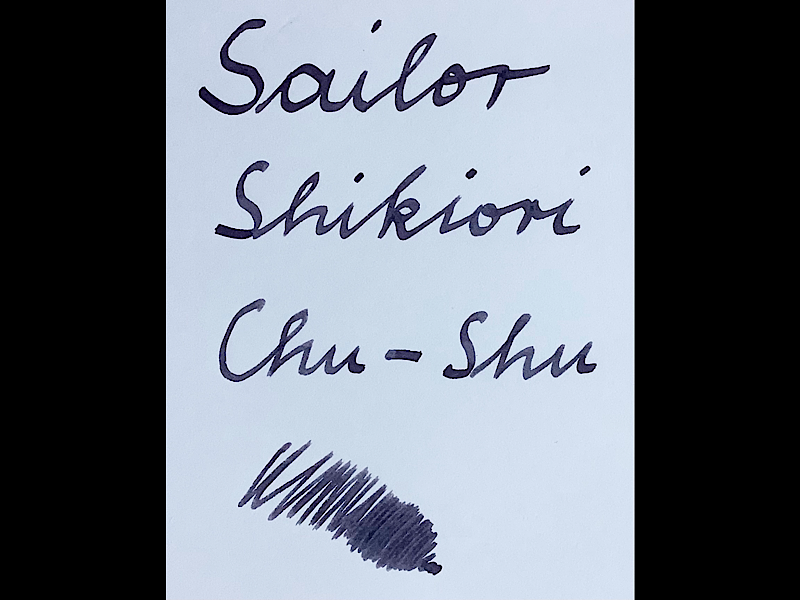 Sailor
Shikiori
Chu-Shu